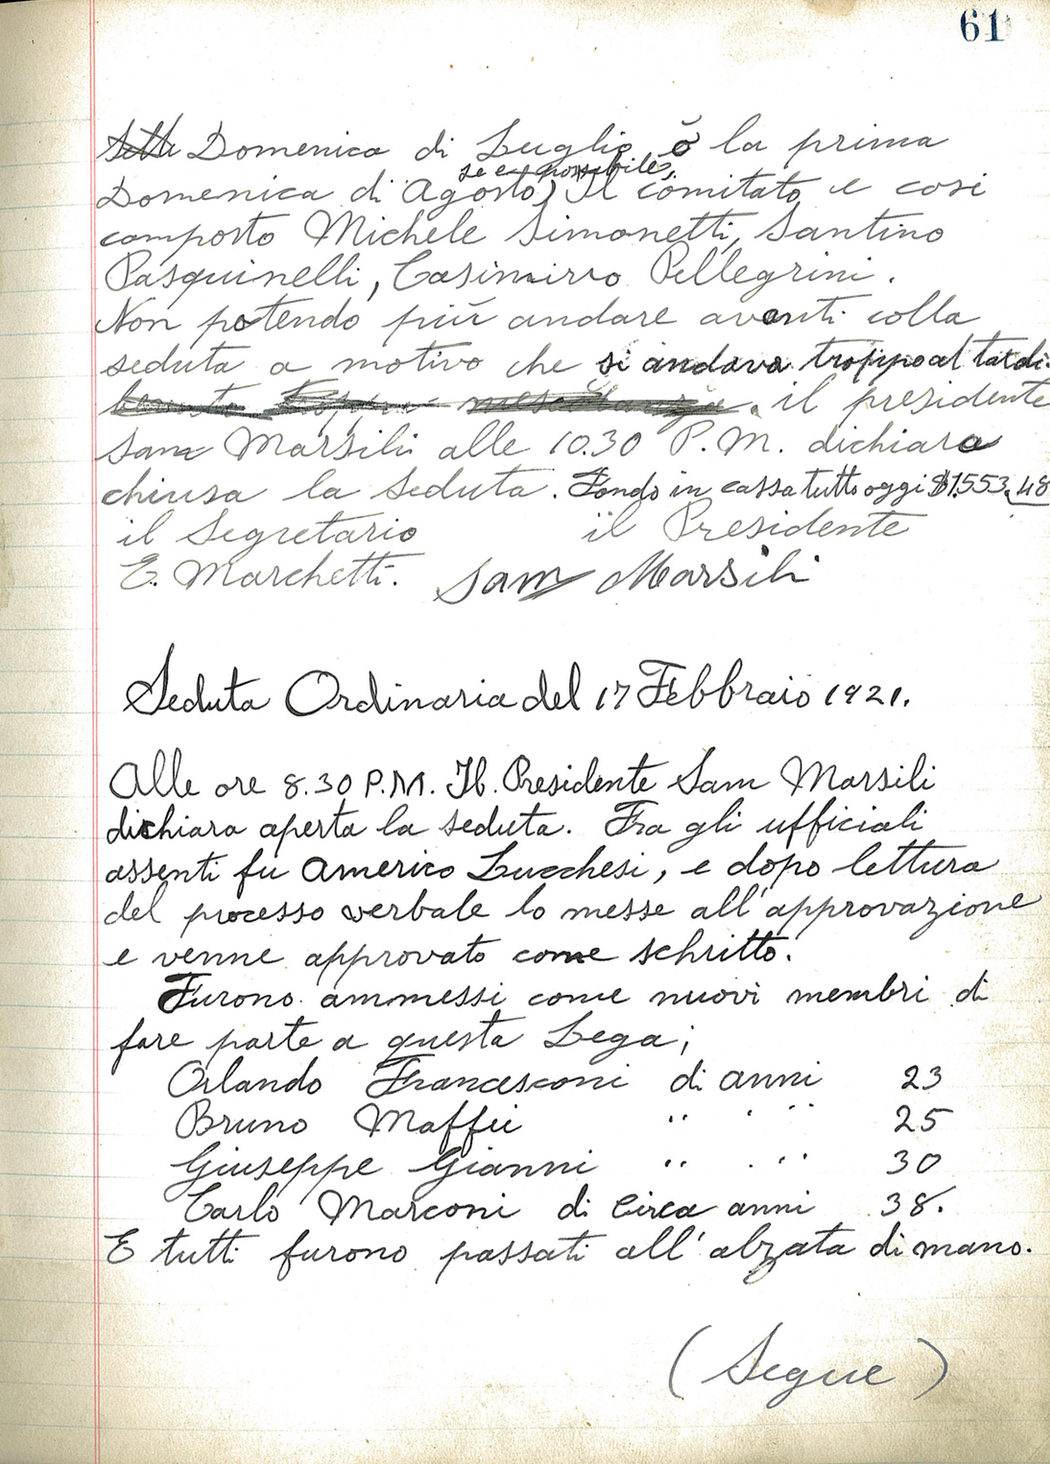 61
Domenica di Luglio, o la prima
se e possibile,
Domenica di Agosto, Il comitato e cosi
composto Michele Simonetti, Santino
Pasquinelli, Casimirro Pellegrini.
Non potendo più andare avanti colla
seduta a motivo che si andava troppo al tardi.
il presidente
Sam Marsili alle 10.30 P.M. dichiara
chiusa la seduta. Fondo in cassa tutto oggi $1553.48
il Segretario il Presidente
E. Marchetti. Sam Marsili
Seduta Ordinaria del 17 Febbraio 1921.
Alle ore 8.30 P.M. Il Presidente Sam Marsili
dichiara aperta la seduta. Fra gli ufficiali
assenti fu Americo Lucchesi, e dopo lettura
del processo verbale lo messe all'approvazione
e venne approvato come schritto.
Furono ammessi come nuovi membri di
fare parte a questa Lega;
Orlando Francesconi di anni 23
Bruno Maffei " " 25
Giuseppe Gianni " " 30
Carlo Marconi di circa anni 38.
E tutti furono passati all'alzata di mano.
(Segue)